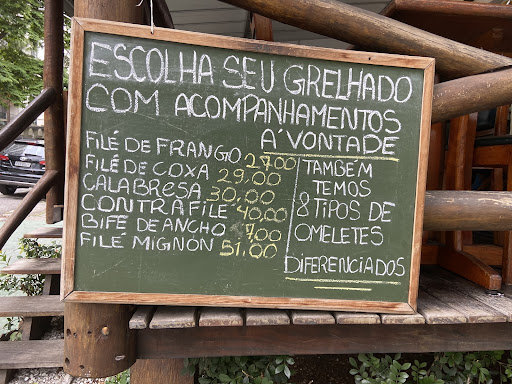 ESCOLHA SEU GRELHADO
COM ACOMPANHAMENTOS
A' VONTADE
FILÉ DE FRANGO 27,00
FILÉ DE COXA 29,00
CALABRESA 30,00
CONTRA FILÉ 40,00
BIFE DE ANCHO
FILÉ MIGNON 51,00
TAMBÉM
TEMOS
8 TIPOS DE
OMELETES
DIFERENCIADOS